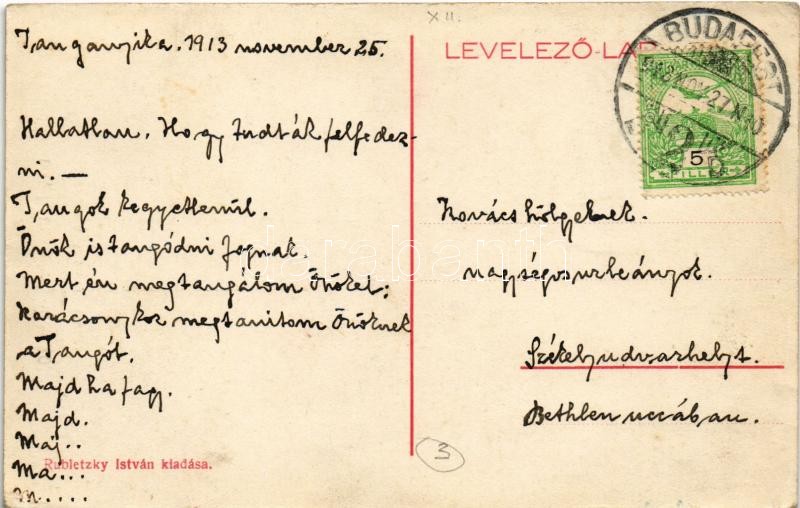 XII.
Tanganyika. 1913 november 25.
LEVELEZŐ-LAP
BUDAPEST
5
FILLÉR
Hallatlan. Hogy tudták felfedez-
ni. —
Tangok kegyetlenül.
Önök is tangódni fognak.
Mert én megtangálom Önöket;
Karácsonykor megtanitom Önöknek
a Tangót.
Majd ha fagy.
Majd.
Maj..
Ma...
M....
Rubletzky István kiadása.
Kovács hölgyeknek.
nagyságos urleányok.
Székelyudvarhelyt.
Bethlen uccában.
3
darabanth